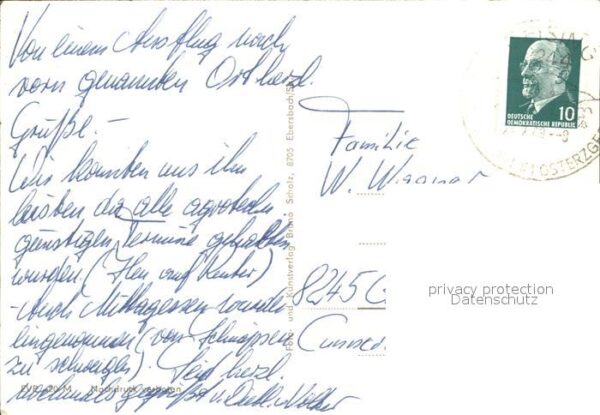 Von einem Ausflug nach
vorn genannten Ort herzl.
Grüße.-
Wir konnten uns ihn
leisten da alle agrotechn.
günstigen Termine gehalten
wurden. (Heu auf Reuter)
Auch Mittagessen wurde
eingenommen (von Schnäpsen
zu schweigen). Seid herzl.
nochmals gegrüßt
Foto- und Kunstverlag Bruno Scholz, 8705 Ebersbach/Sa.
Nachdruck verboten
DEUTSCHE
DEMOKRATISCHE REPUBLIK
10
OSTERZGE
Familie
W. Wagner
8245 G
privacy protection
Datenschutz